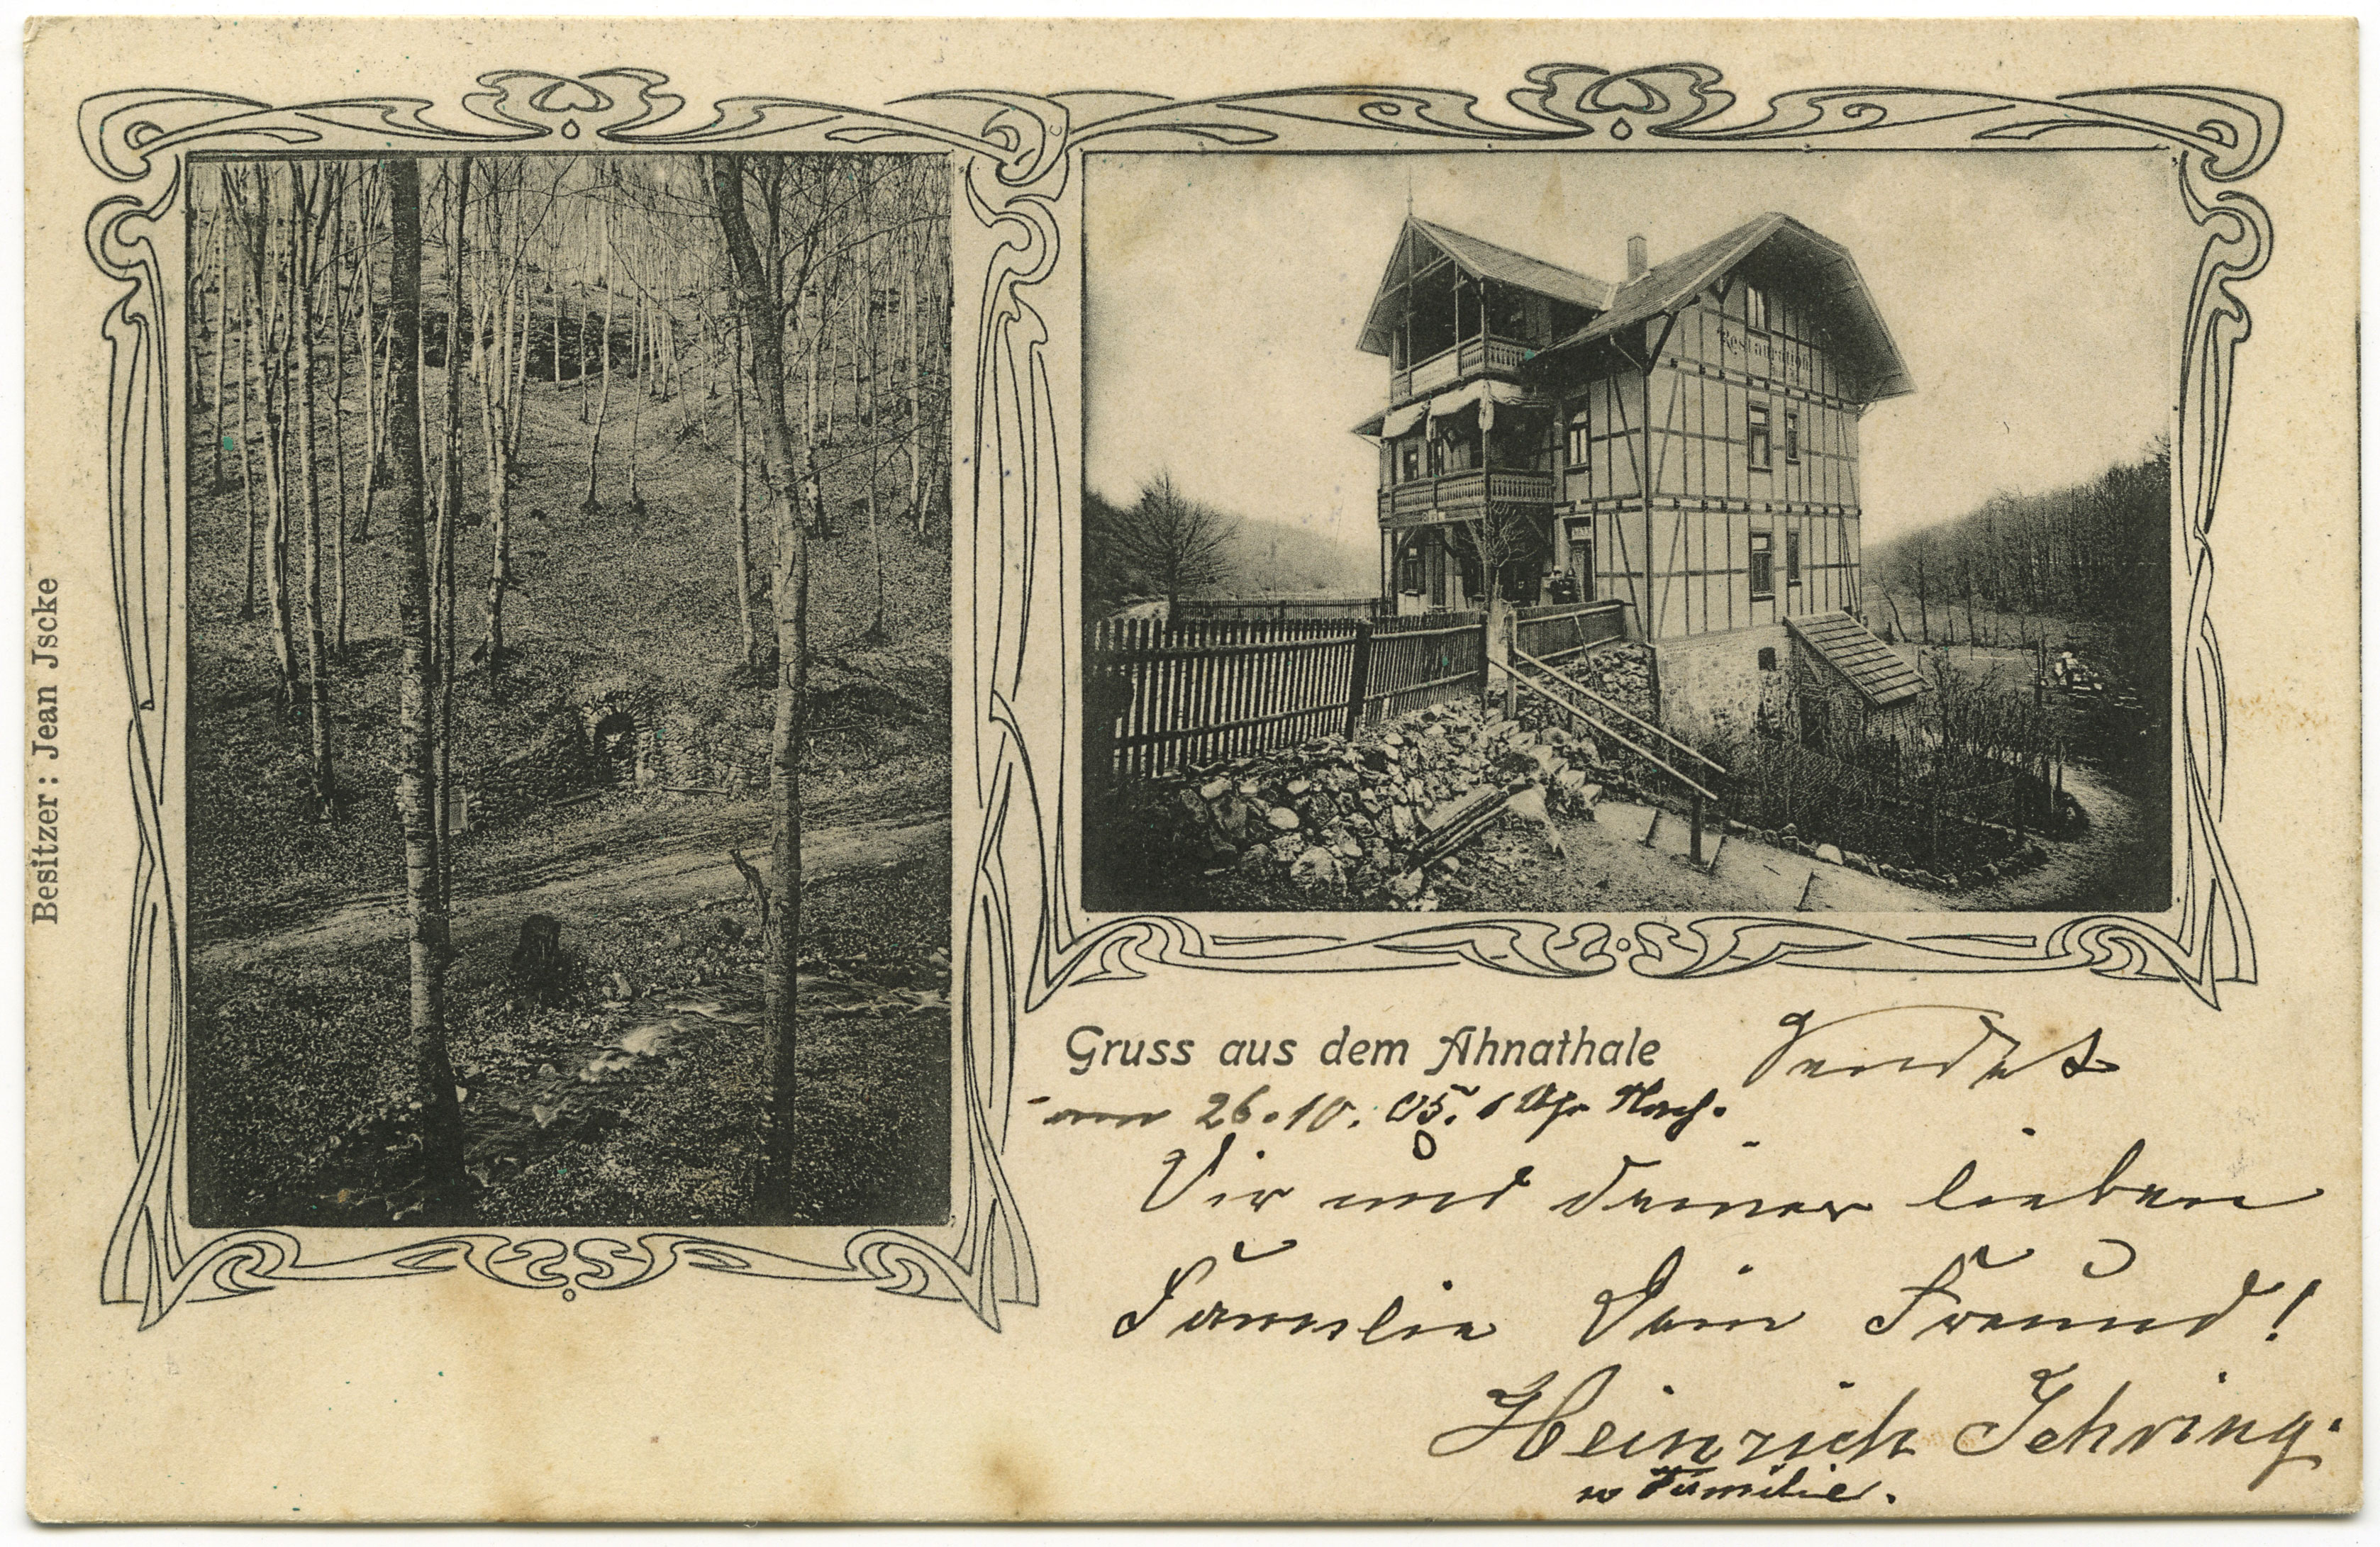 Besitzer: Jean Jscke
Restauration
Gruss aus dem Ahnathale sendet
am 26.10.05. 6 Uhr Nach.
Dir und deiner lieben
Familie Dein Freund!
Heinrich Jehring.
u Familie.